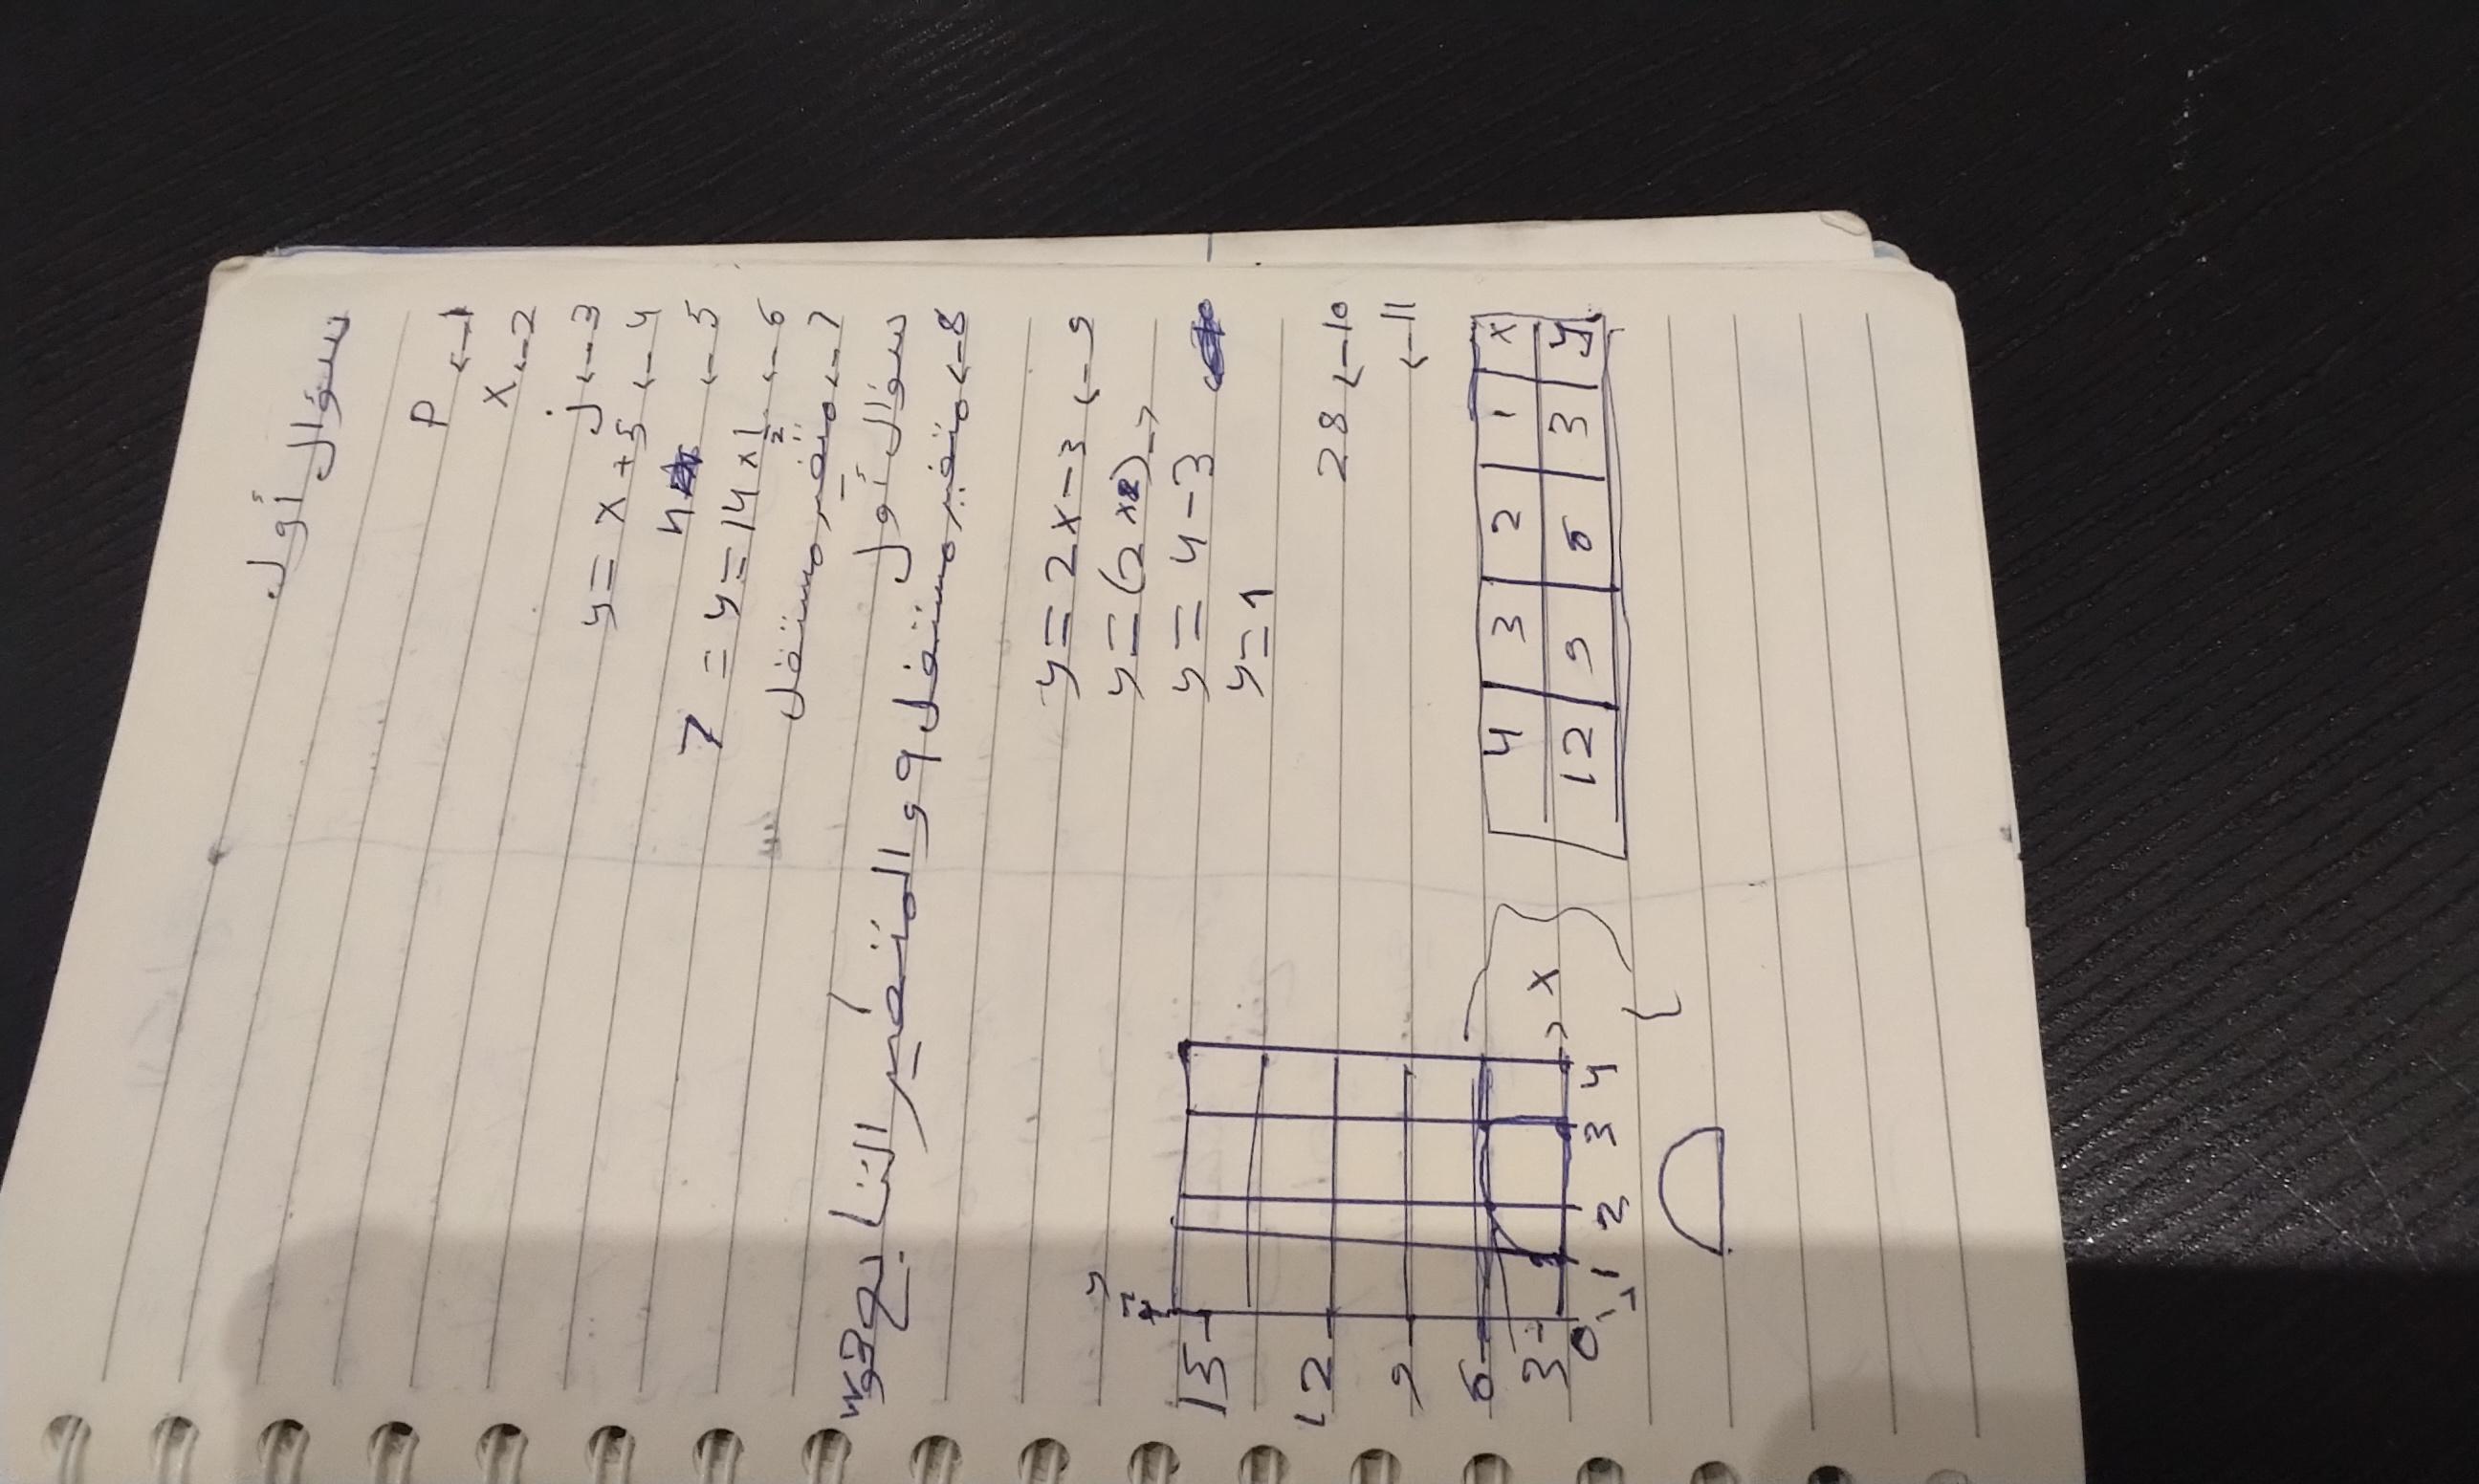 سؤال أول
1→ P
2→ X
3→ ز
4→ y = x + 5
5→ 4
6→ 7 = y = 14 x 1/2
7→ متغير مستقل
سؤال أول
8→ متغير مستقل q و المتغير التابع هو
9→ y = 2x - 3
y = (2 x 2)
y = 4 - 3
y = 1
10→ 28
11→
x 1 2 3 4
y 3 6 9 12
y
15
12
9
6
3
0 1 2 3 4 x